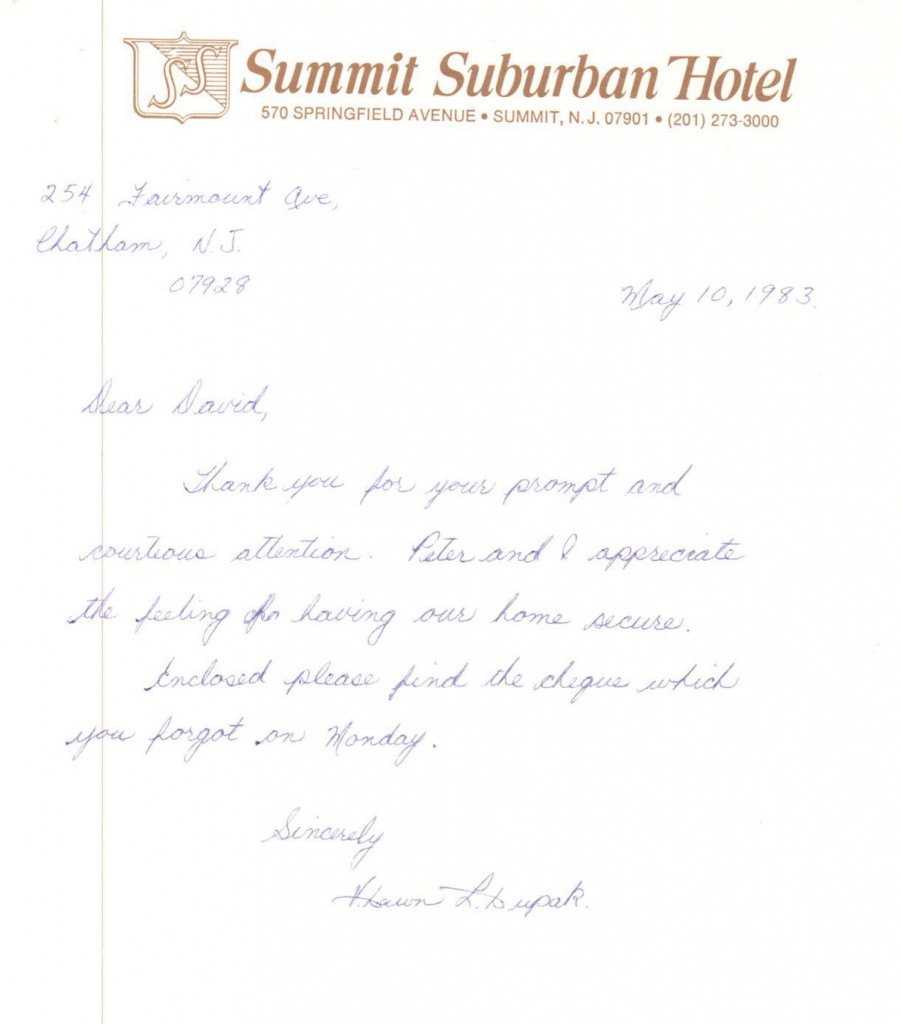 SS
Summit Suburban Hotel
570 SPRINGFIELD AVENUE • SUMMIT, N.J. 07901 • (201) 273-3000
254 Fairmount Ave,
Chatham, N.J.
07928
May 10, 1983.
Dear David,
Thank you for your prompt and
courteous attention. Peter and I appreciate
the feeling of having our home secure.
Enclosed please find the cheque which
you forgot on Monday.
Sincerely
L. Dupak.